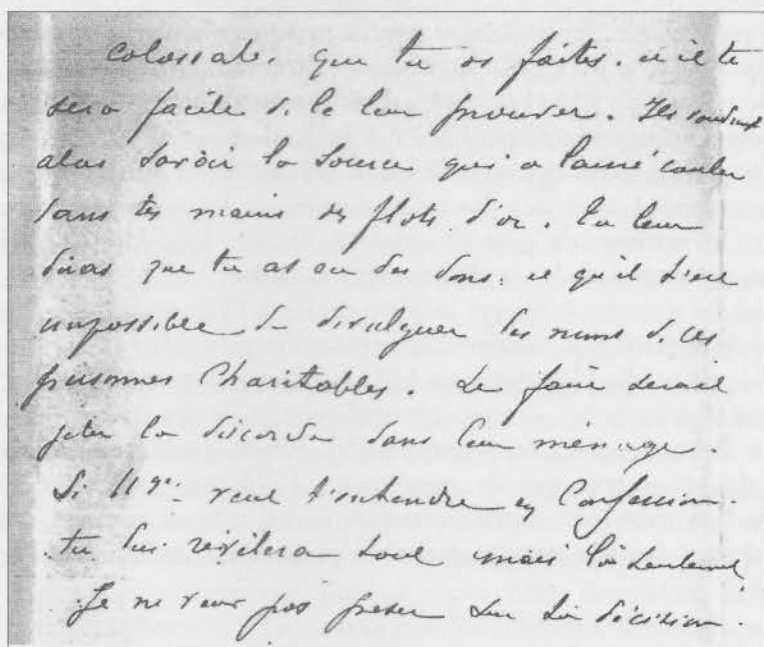 colossales. que tu as faites. et il te
sera facile de le leur prouver. Ils voudront
alors savoir la source qui a laissé couler
dans tes mains des flots d'or. Tu leur
diras que tu as eu des dons. et qu'il t'est
impossible de divulguer les noms de ces
personnes Charitables. Le faire serait
jeter la discorde dans leur ménage.
Si Mgr veut t'entendre en Confession.
tu lui révélera tout mais là seulement.
Je ne veux pas peser sur ta décision.